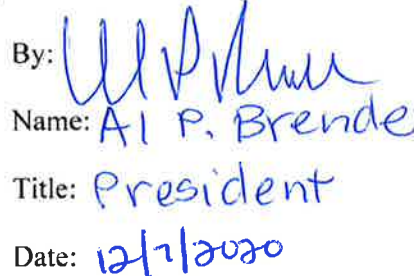 By:
Name: Al P. Brende
Title: President
Date: 12/7/2020